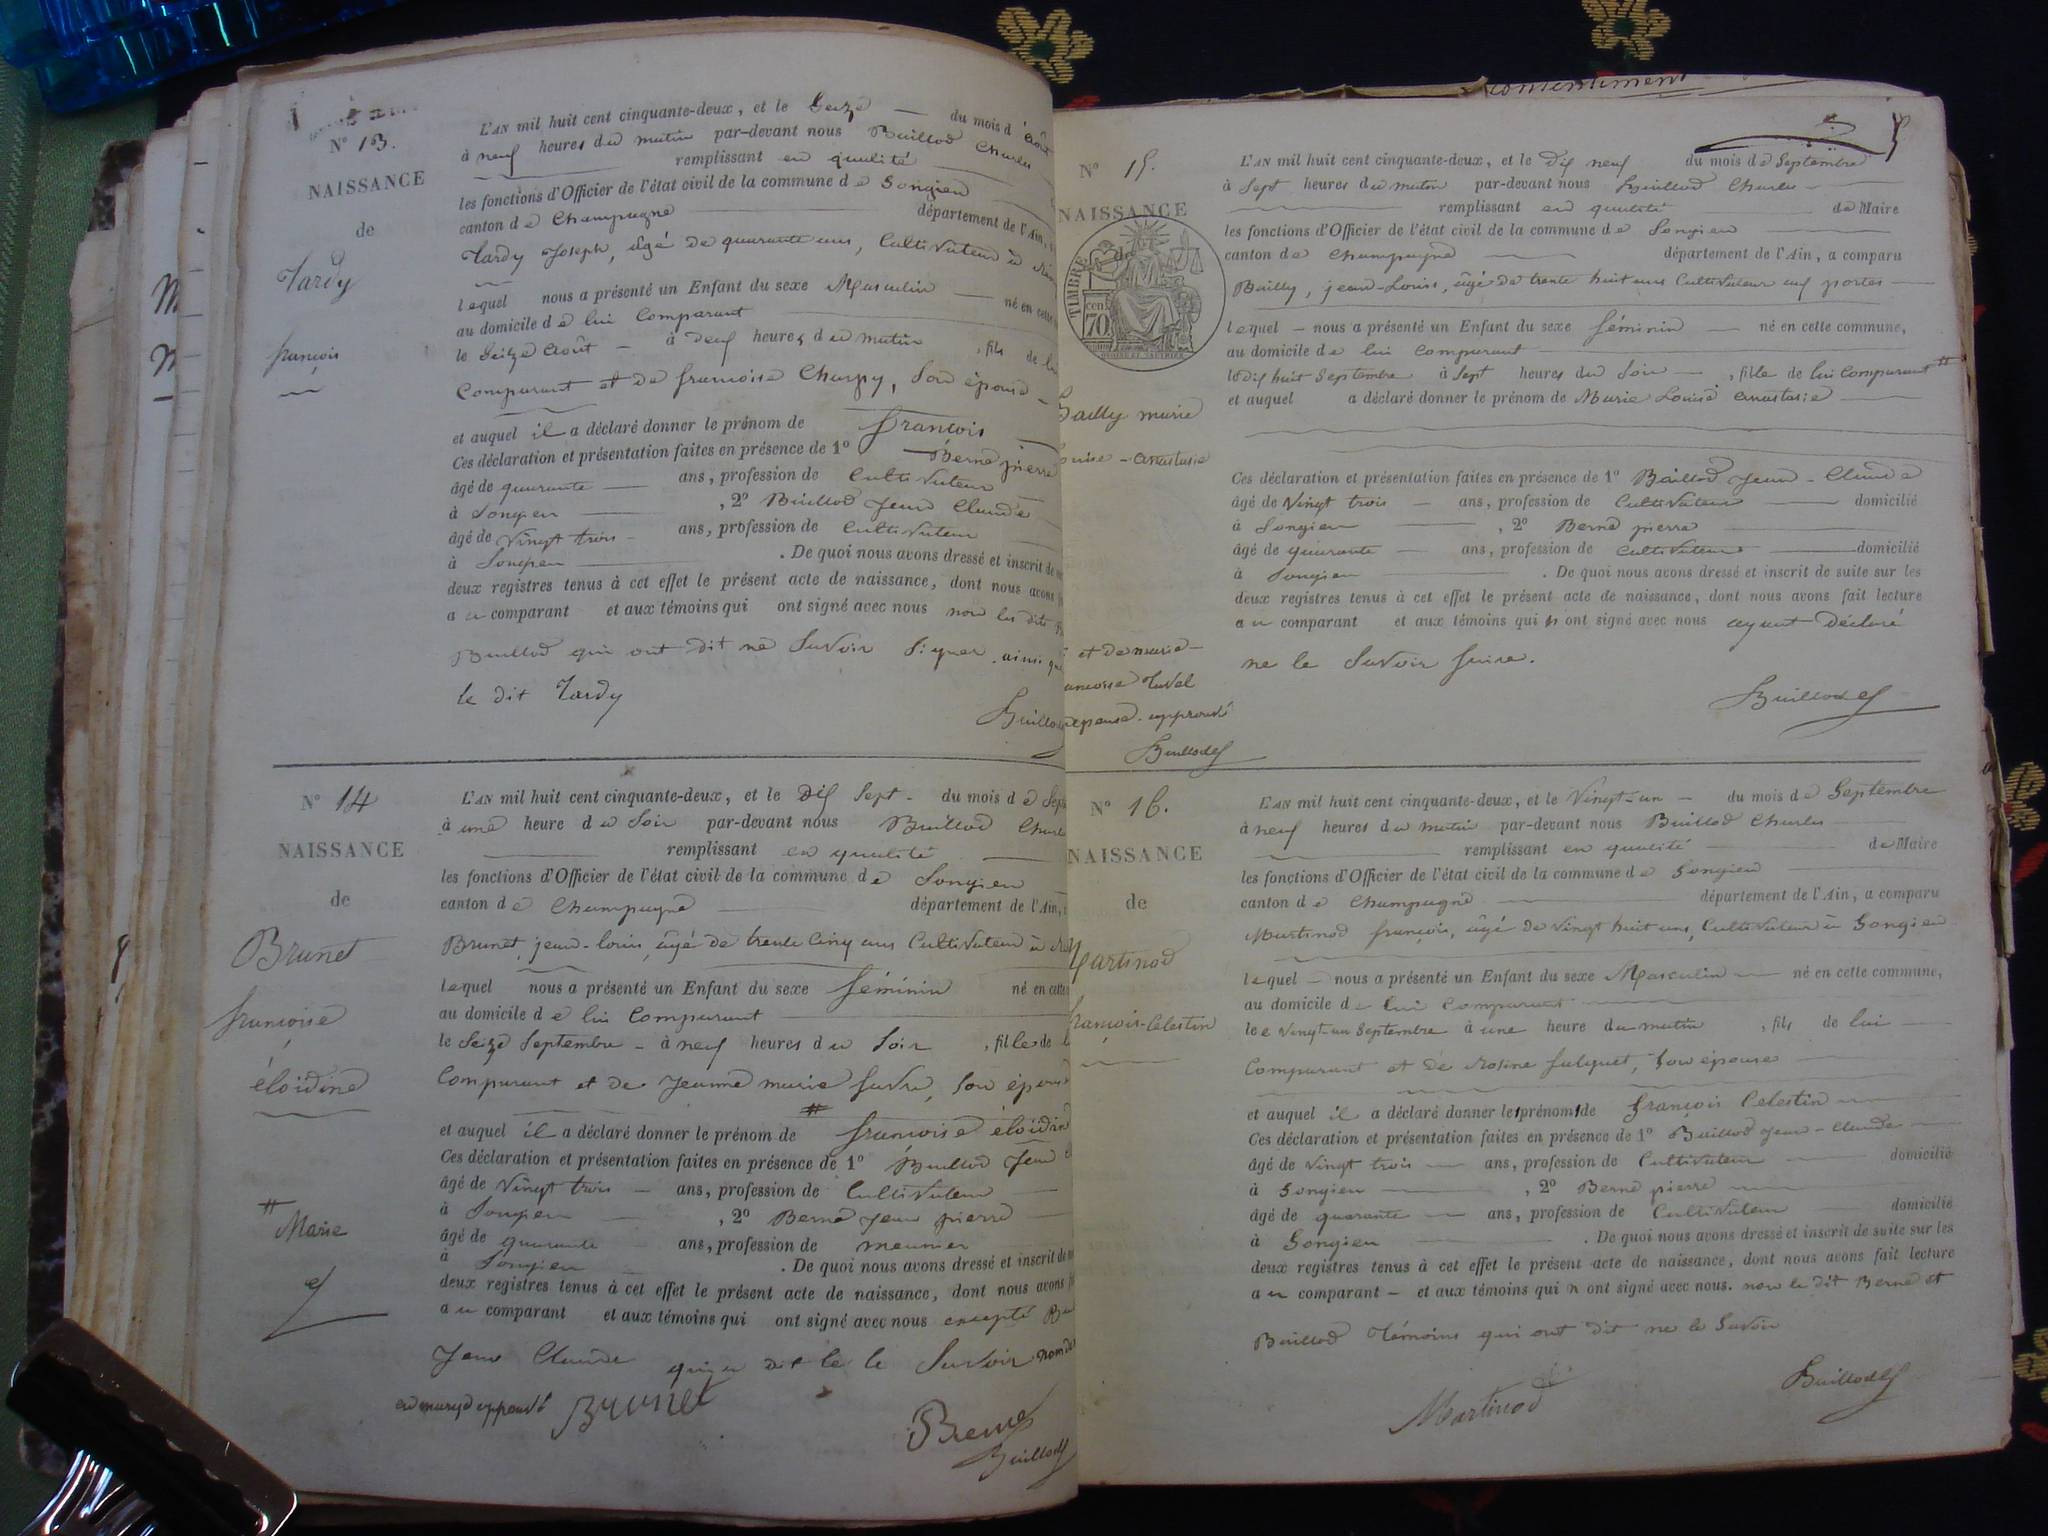 consentiment
N° 13.
NAISSANCE
de
Tardy
françois
L'AN mil huit cent cinquante-deux, et le Seize du mois d'août
à neuf heures du matin par-devant nous Baillod Charles
remplissant en qualité
les fonctions d'Officier de l'état civil de la commune de Songieu
canton de Champagne département de l'Ain,
Tardy Joseph, âgé de quarante ans, Cultivateur à
lequel nous a présenté un Enfant du sexe Masculin né en cette
au domicile de lui Comparant
le Seize août à deux heures du matin, fils de lui
Comparant et de françoise Charpy, son épouse
et auquel il a déclaré donner le prénom de françois
Ces déclaration et présentation faites en présence de 1° Berne pierre
âgé de quarante ans, profession de Cultivateur
à Songieu, 2° Baillod Jean Claude
âgé de Vingt trois ans, profession de Cultivateur
à Songieu. De quoi nous avons dressé et inscrit de
deux registres tenus à cet effet le présent acte de naissance, dont nous avons
au comparant et aux témoins qui ont signé avec nous non les dits
Baillod qui ont dit ne Savoir Signer ainsi que
le dit Tardy
Baillod
N° 14
NAISSANCE
de
Brunet
françoise
éloïdine
#
Marie
L'AN mil huit cent cinquante-deux, et le Dix Sept du mois de Sept
à une heure du Soir par-devant nous Baillod Charles
remplissant en qualité
les fonctions d'Officier de l'état civil de la commune de Songieu
canton de Champagne département de l'Ain,
Brunet, jean-louis, âgé de trente Cinq ans Cultivateur à
lequel nous a présenté un Enfant du sexe féminin né en cette
au domicile de lui Comparant
le Seize Septembre à neuf heures du Soir, fille de
Comparant et de Jeanne marie favre, Son épouse
#
et auquel il a déclaré donner le prénom de françoise éloïdine
Ces déclaration et présentation faites en présence de 1° Baillod Jean
âgé de Vingt trois ans, profession de Cultivateur
à Songieu, 2° Berne Jean pierre
âgé de quarante ans, profession de meunier
à Songieu. De quoi nous avons dressé et inscrit de
deux registres tenus à cet effet le présent acte de naissance, dont nous avons
au comparant et aux témoins qui ont signé avec nous excepté
Jean Claude qui a dit le Savoir
en marge approuvé Brunet
Berne
Baillod
N° 15.
NAISSANCE
de
TIMBRE
70
Bailly marie
Louise - anastasie
et de marie
françoise Tuvel
épouse. approuvé
Baillod
L'AN mil huit cent cinquante-deux, et le Dix neuf du mois de Septembre
à Sept heures du matin par-devant nous Baillod Charles
remplissant en qualité de Maire
les fonctions d'Officier de l'état civil de la commune de Songieu
canton de Champagne département de l'Ain, a comparu
Bailly, jean-Louis, âgé de trente huit ans Cultivateur aux portes
lequel nous a présenté un Enfant du sexe féminin né en cette commune,
au domicile de lui Comparant
le Dix huit Septembre à Sept heures du Soir, fille de lui Comparant #
et auquel a déclaré donner le prénom de Marie Louise anastasie
Ces déclaration et présentation faites en présence de 1° Baillod Jean-Claude
âgé de Vingt trois ans, profession de Cultivateur domicilié
à Songieu, 2° Berne pierre
âgé de quarante ans, profession de Cultivateur domicilié
à Songieu. De quoi nous avons dressé et inscrit de suite sur les
deux registres tenus à cet effet le présent acte de naissance, dont nous avons fait lecture
au comparant et aux témoins qui n ont signé avec nous ayant Déclaré
ne le Savoir faire.
Baillod
N° 16.
NAISSANCE
de
Martinod
françois-Celestin
L'AN mil huit cent cinquante-deux, et le Vingt-un du mois de Septembre
à neuf heures du matin par-devant nous Baillod Charles
remplissant en qualité de Maire
les fonctions d'Officier de l'état civil de la commune de Songieu
canton de Champagne département de l'Ain, a comparu
Martinod françois, âgé de Vingt huit ans, Cultivateur à Songieu
lequel nous a présenté un Enfant du sexe Masculin né en cette commune,
au domicile de lui Comparant
le Vingt-un Septembre à une heure du matin, fils de lui
Comparant et de Rosine fulquet, Son épouse
et auquel il a déclaré donner les prénoms de françois Celestin
Ces déclaration et présentation faites en présence de 1° Baillod Jean-Claude
âgé de Vingt trois ans, profession de Cultivateur domicilié
à Songieu, 2° Berne pierre
âgé de quarante ans, profession de Cultivateur domicilié
à Songieu. De quoi nous avons dressé et inscrit de suite sur les
deux registres tenus à cet effet le présent acte de naissance, dont nous avons fait lecture
au comparant et aux témoins qui n ont signé avec nous. non le dit Berne et
Baillod Témoins qui ont dit ne le Savoir
Martinod
Baillod